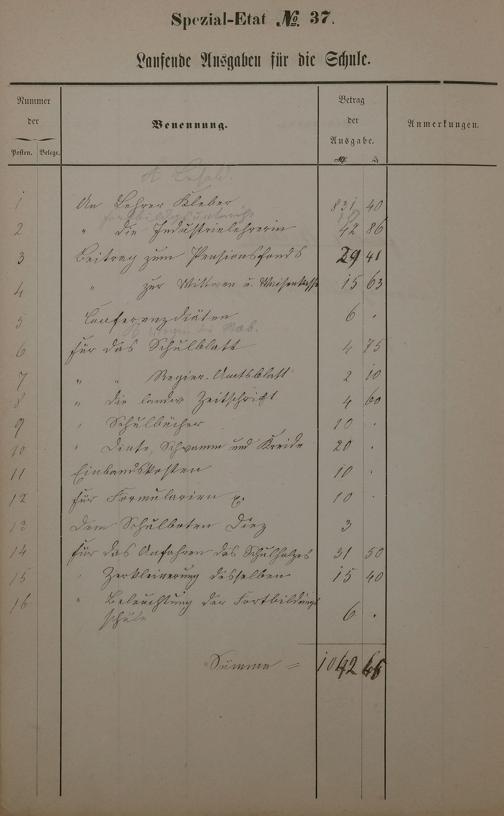 Spezial-Etat No. 37.
Laufende Ausgaben für die Schule.
Nummer der
Posten. Belege.
Benennung.
Betrag der Ausgabe.
M. ₰
Anmerkungen.
A.
1 An Lehrer Kleber 831 40
2 " die Industrielehrerin 42 86
3 Beitrag zum Pensionsfonds 29 41
4 " zur Wittwen u. Waisenkasse 15 63
5 Conferenzdiäten 6 .
6 für das Schulblatt 4 75
7 " " Regier. Amtsblatt 2 10
8 " die landw. Zeitschrift 4 60
9 " Schulbücher 10 .
10 " Dinte, Schwamm und Kreide 20 .
11 Einbandkosten 10 .
12 für Formularien 10 .
13 Dem Schulboten Diez 3
14 für das Anfahren des Schulholzes 31 50
15 " Zerkleinerung desselben 15 40
16 " Beleuchtung der Fortbildungs
schule 6 .
Summe = 1042